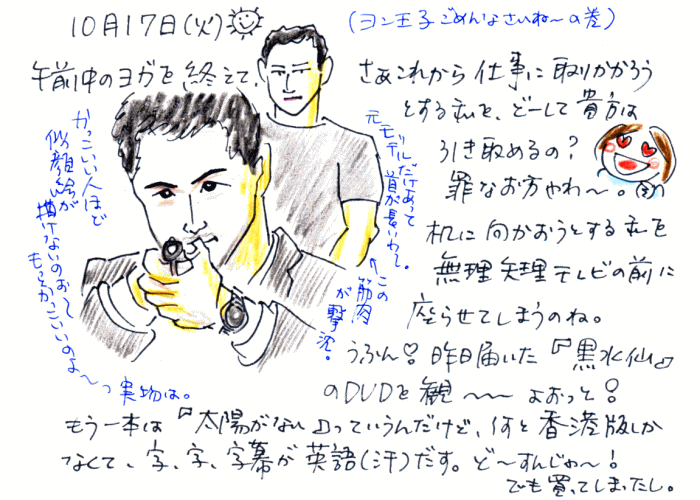 10月17日(火)
(ヨン王子ごめんなさいね〜の巻)
午前中のヨガを終えて、
さぁこれから仕事に取りかかろう
とする私を、どーして貴方は
引き取めるの?
罪なお方やわ〜。
机に向かおうとする私を
無理矢理テレビの前に
座らせてしまうのね。
うふん♡昨日届いた『黒水仙』
のDVDを観〜〜よおっと♡
もう一本は『太陽がない』っていうんだけど、何と香港版しか
なくて、字、字、字幕が英語(汗)だす。ど〜すんじゃ〜!
でも買ってしまったし。
かっこいい人ほど
似顔絵が
描けないのぉ〜
もっとかっこいいのよ〜っ実物は。
元モデルだけあって
首が長いわ〜。
←この
筋肉
が撃沈。